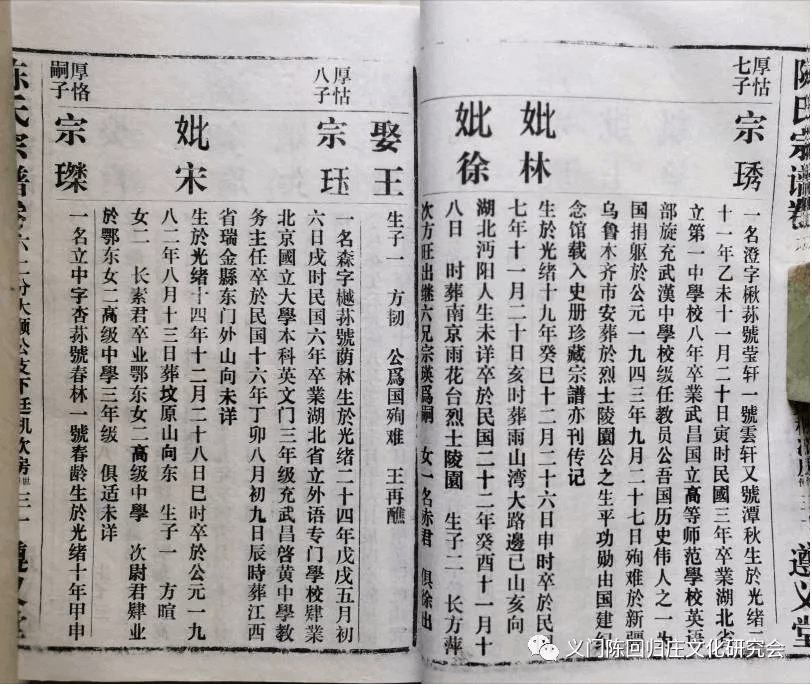 陳氏宗谱卷
遵义堂
厚怙
七子
宗琇
一名澄字楸荪號莹轩一號雲轩又號潭秋生於光绪
十一年乙未十一月二十日寅时民國三年卒業湖北省
立第一中學校八年卒業武昌国立高等师范學校英语
部旋充武漢中學校级任教员公吾国历史伟人之一为
国捐躯於公元一九四三年九月二十七日殉难於新疆
乌鲁木齐市安葬於烈士陵園公之生平功勋由国建纪
念馆载入史册珍藏宗譜亦刊传记
妣林
生於光绪十九年癸巳十二月二十六日申时卒於民国
七年十一月二十日亥时葬雨山湾大路邊巳山亥向
妣徐
湖北沔阳人生未详卒於民国二十二年癸酉十一月十
八日 时葬南京雨花台烈士陵園 生子二 长方萍
次方旺出继六兄宗瑛爲嗣 女一名赤君 俱徐出
娶王
生子一 方韧 公爲国殉难 王再醮
厚怙
八子
宗珏
一名森字樾荪號荫林生於光绪二十四年戊戌五月初
六日戌时民国六年卒業湖北省立外语专门學校肄業
北京國立大學本科英文门三年级充武昌啓黄中學教
务主任卒於民国十六年丁卯八月初九日辰時葬江西
省瑞金縣东门外山向未详
妣宋
生於光绪十四年十二月二十八日巳时卒於公元一九
八二年八月十三日葬坟原山向东 生子一 方暄
女二 长素君卒业鄂东女二高级中學 次尉君肄业
於鄂东女二高级中學三年级 俱适未详
厚恪
嗣子
宗璨
一名立中字杏荪號春林一號春龄生於光绪十年甲申
陈氏宗谱卷六二份大顺公支下廷机次房世三一
遵义堂
义门陈回归庄文化研究会